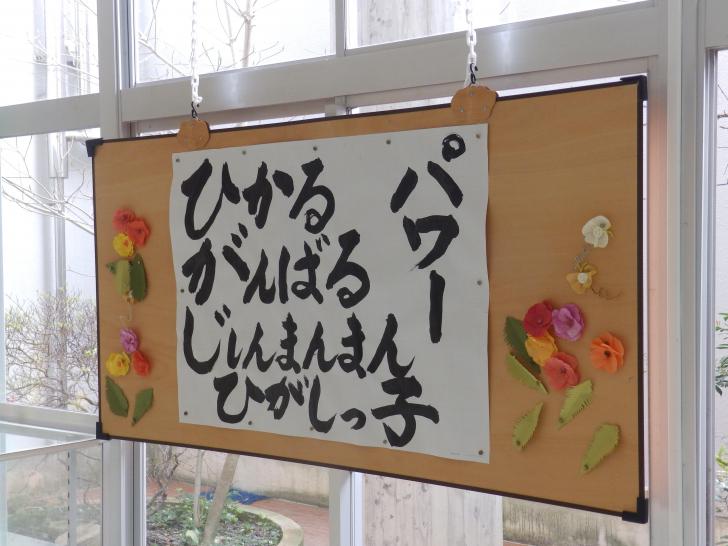 パワー
ひかる
がんばる
じしんまんまん
ひがしっ子